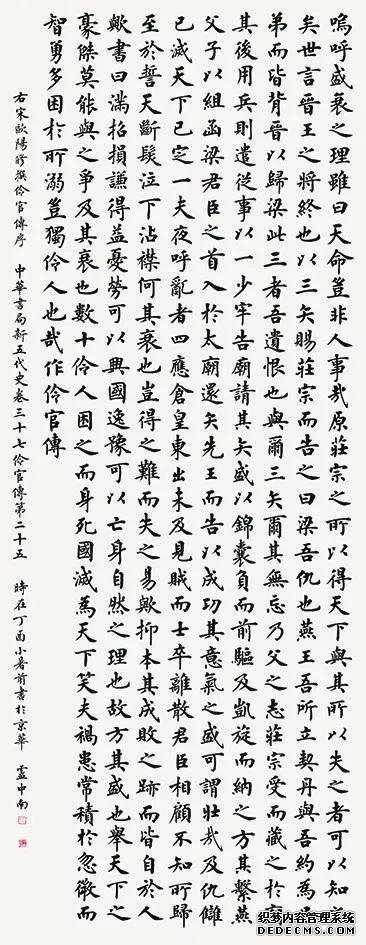 嗚呼盛衰之理雖曰天命豈非人事哉原莊宗之所以得天下與其所以失之者可以知之
矣世言晉王之將終也以三矢賜莊宗而告之曰梁吾仇也燕王吾所立契丹與吾約為兄
弟而皆背晉以歸梁此三者吾遺恨也與爾三矢爾其無忘乃父之志莊宗受而藏之於廟
其後用兵則遣從事以一少牢告廟請其矢盛以錦囊負而前驅及凱旋而納之方其繫燕
父子以組函梁君臣之首入於太廟還矢先王而告以成功其意氣之盛可謂壯哉及仇讎
已滅天下已定一夫夜呼亂者四應倉皇東出未及見賊而士卒離散君臣相顧不知所歸
至於誓天斷髮泣下沾襟何其衰也豈得之難而失之易歟抑本其成敗之跡而皆自於人
歟書曰滿招損謙得益憂勞可以興國逸豫可以亡身自然之理也故方其盛也舉天下之
豪傑莫能與之爭及其衰也數十伶人困之而身死國滅為天下笑夫禍患常積於忽微而
智勇多困於所溺豈獨伶人也哉作伶官傳
右宋歐陽脩撰伶官傳序 中華書局新五代史卷三十七伶官傳第二十五 時在丁酉小暑前書於京華 盧中南
织梦内容管理系统
DEDECMS.COM